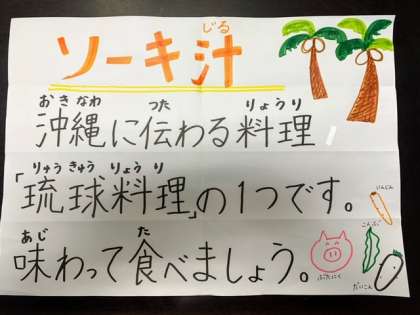 じる
ソーキ汁
おきなわ つた りょうり
沖縄に伝わる料理
りゅうきゅう りょうり
「琉球料理」の1つです。
あじ た
味わって食べましょう。
にんじん
こんぶ
ぶたにく
だいこん